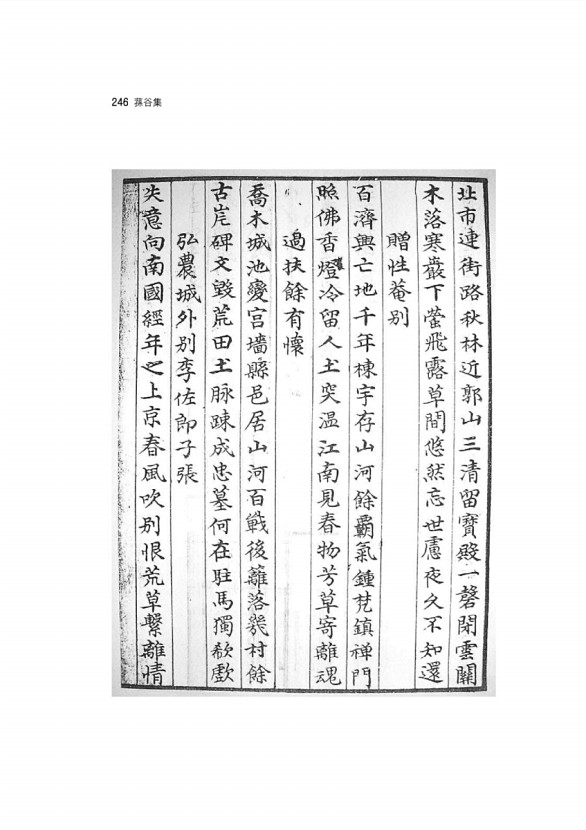 246 蓀谷集
北市連街路秋林近郭山三清留寶殿一磬閉雲關
木落寒巖下螢飛露草間悠然忘世慮夜久不知還
贈性菴別
百濟興亡地千年棟宇存山河餘霸氣鍾梵鎮禅門
照佛香燈冷留人土突温江南見春物芳草寄離魂
過扶餘有懷
喬木城池變宮墻縣邑居山河百戰後籬落幾村餘
古岸碑文毀荒田土脉踈成忠墓何在駐馬獨欷歔
弘農城外別李佐郎子張
失意向南國經年之上京春風吹別恨荒草繫離情